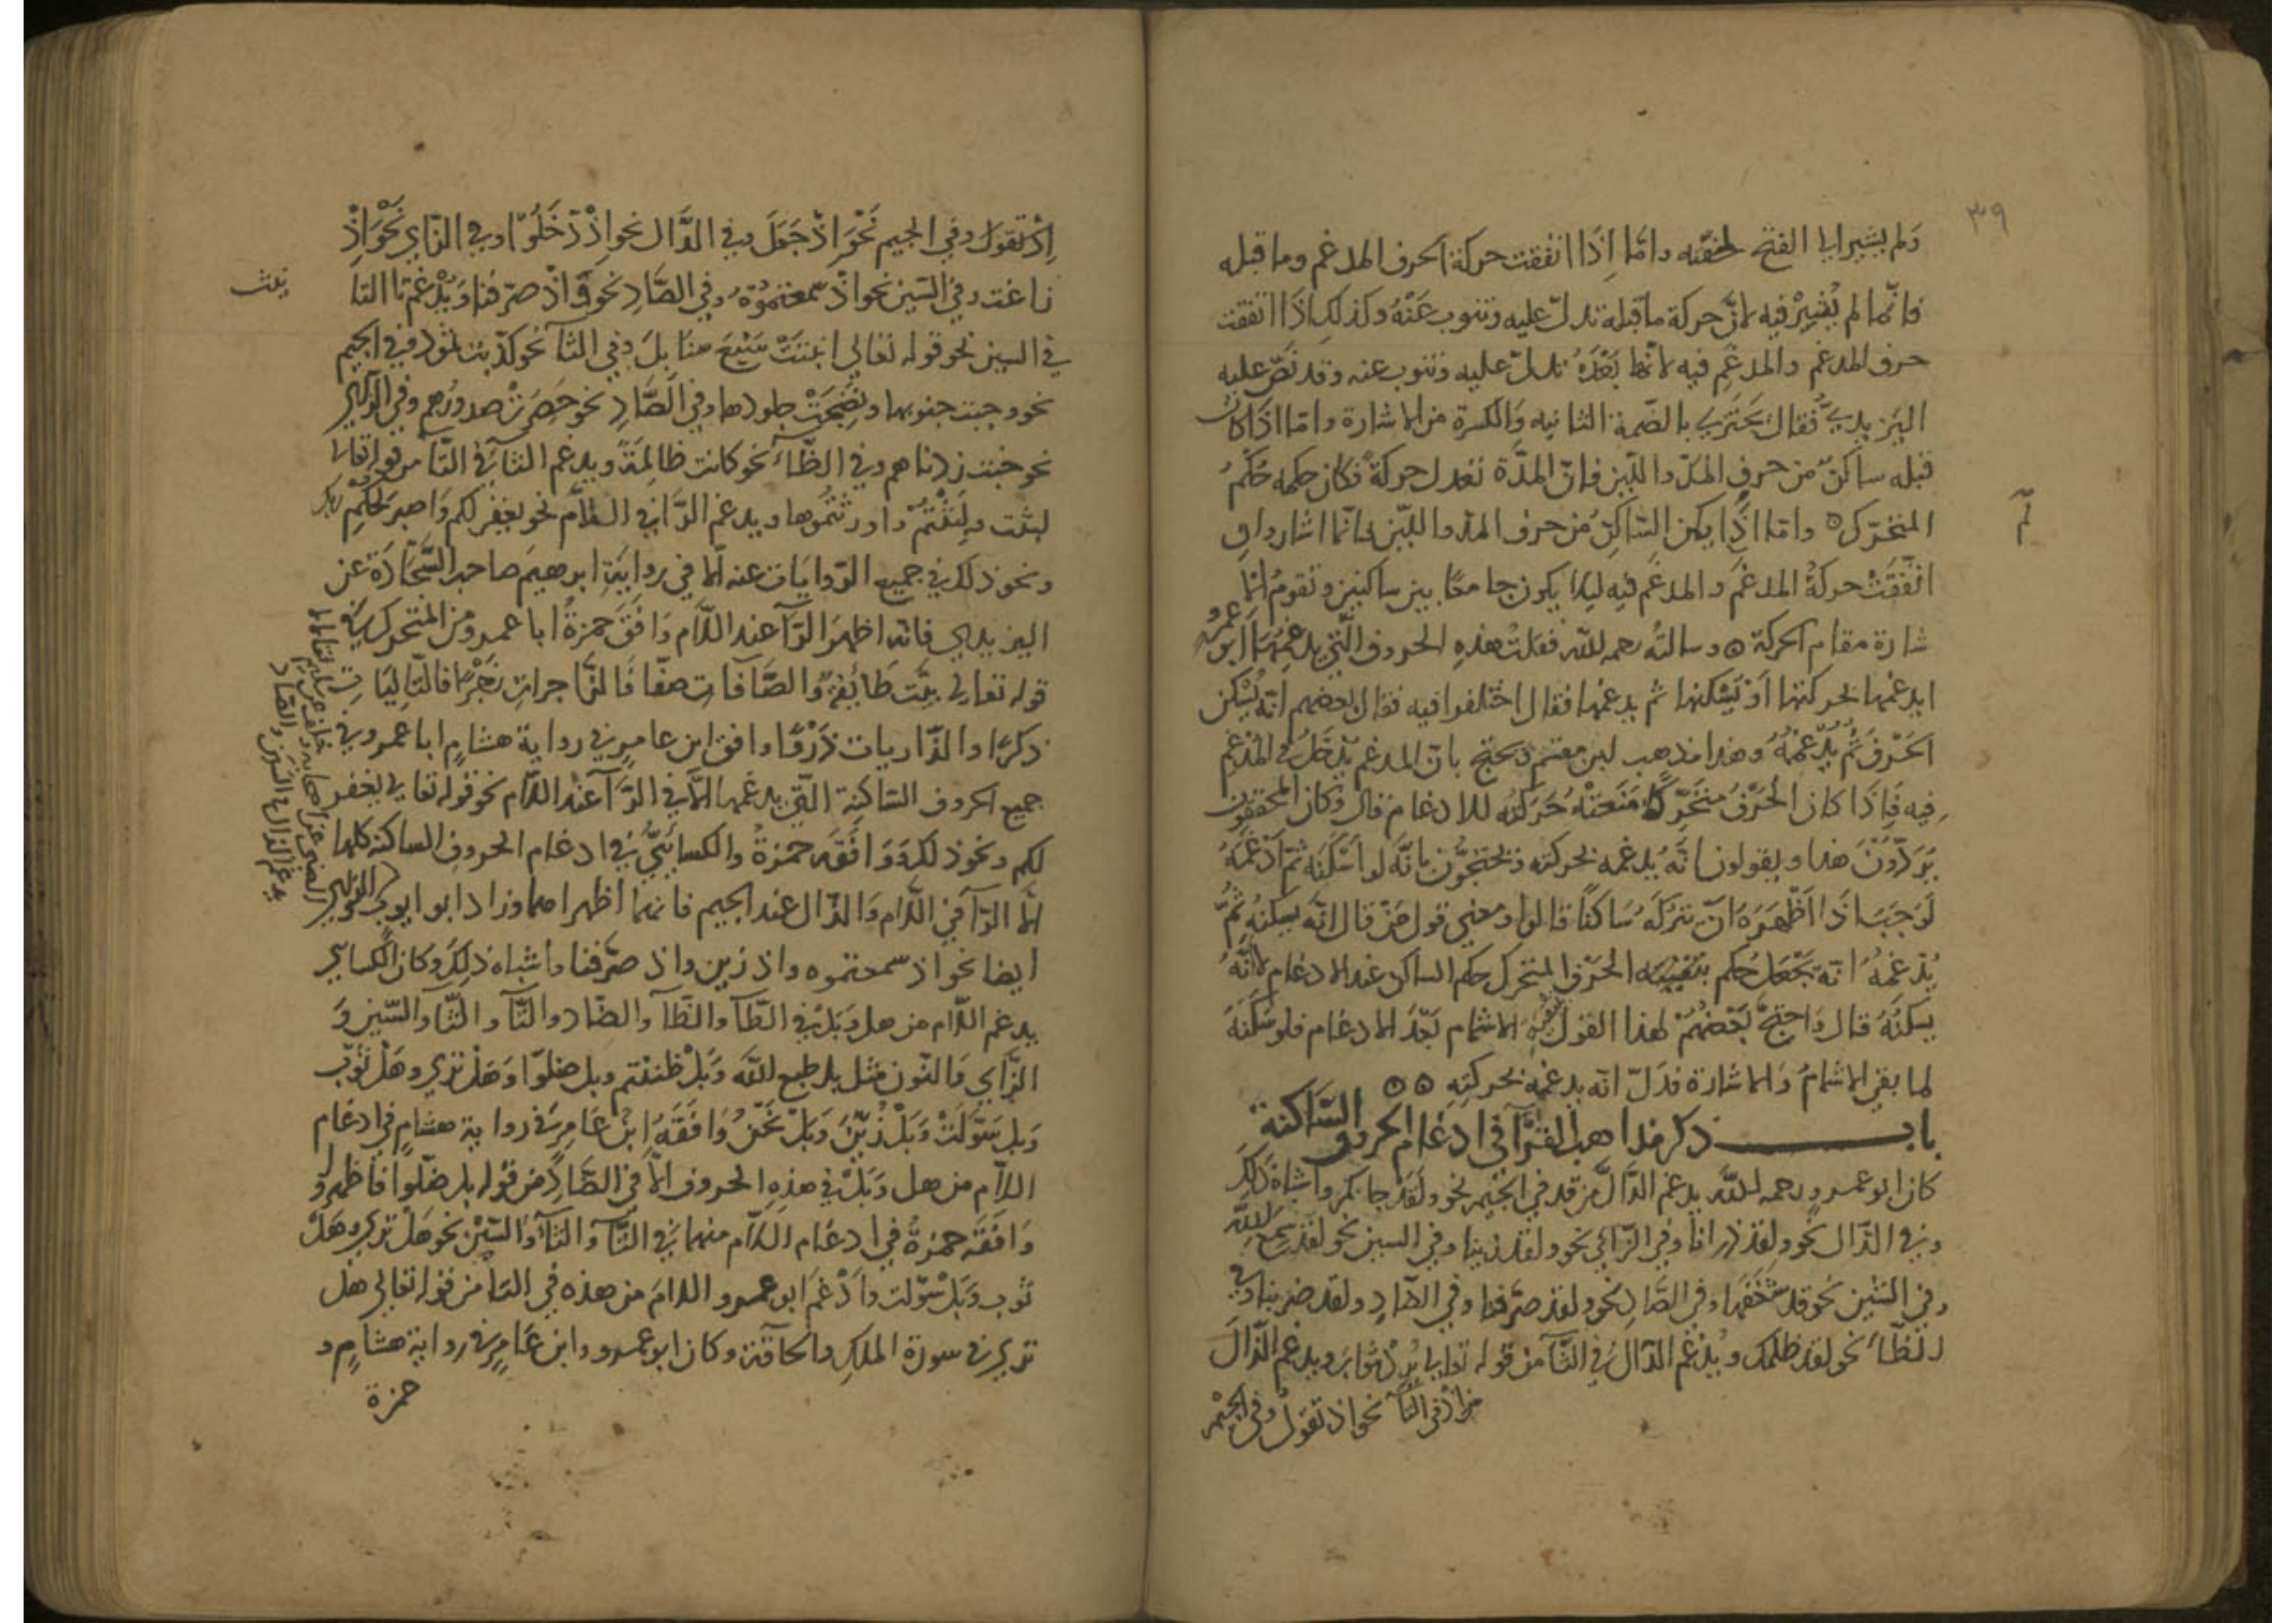 ٣٩
ولم يشير الى الفتح لخفته واما اذا اتفقت حركة الحرف المدغم وما قبله
فانما لم يُشِيرْ فيه لانَّ حركة ما قبله تدلّ عليه وتنوب عَنْهُ وكذلك اذَا اتفقت
حرف المدغم والمدغم فيه لانها بَعْدَهُ تدلّ عليه وتنوب عنه وقد نَصّ عليه
اليَزيديّ فقال يَجْتَزِي بالضمة الثانيه وَالكسرة من الاشارة واما اذا كان
قبله ساكنٌ من حروف المدّ واللّين فانّ المدَّة تعدل حركةً فكان حكمه حُكْمُ
المتحرّك ٥ واما اذا يكن السّاكِنُ من حرف المدّ واللّين فانّما اشار وان
لم
اتّفقَتْ حركةُ المدغَم والمدغَم فيه ليلا يكون جامعًا بين ساكنين وتقومُ الا
شارة مقام الحركة ٥ وسالتُه رحمه الله فقلتُ هذهِ الحروف الّتي يدغِمُهَا ابو عمرو
ايدغمها بحركتها اَوْ يُسْكنها ثم يدغمها فقال اختلفوا فيه فقال بعضهم انّه يُسْكن
الحَرْفَ ثُمَّ يُدْغمُهُ وهذا مذهب ابن مقسم ويحتج بانّ المدغم يَدْخُلُ في المُدْغم
فيه فَاِذَا كان الحَرْفُ متحَرِّكًا مَنَعَتْهُ حَرَكَته للادغام قال وكان المحققون
يَرُدّوْنَ هذا ويقولون انّه يُدغمه بحركته ويحتجُّون بانَّه لو اَسْكَنَه ثمّ اَدْغَمَهُ
لَوَجَبَ اذَا اَظْهَرَهُ انْ يَتْرُكَهُ سَاكنًا قالوا ومعنى قول مَنْ قال انّه يسكنُهُ ثُمَّ
يُدْغمُهُ انّه يَجْعَل حُكم الحَرْفِ المتحرك حكم الساكن عند الادغام لا انَّهُ
يسكنُهُ قال وَاحتجَّ بَعْضُهُمْ لهذا القول الاشمام بَعْدَ الادغام فلو سَكَّنَهُ
لما بقي الاشمامُ وَالاشارة فدَلّ انّه يدغمه بحركتِهِ ٥٥
باب ذكر مذاهب القرّآ في ادغام الحروف السّاكنة
كان ابو عمرو رحمه الله يدغم الدَّالَ من قد في الجيم نحو ولقد جاكم واشباه ذلكَ
وفي الذّال نحو ولقد ذرانا وفي الزّاي نحو ولقد زينا وفي السين نحو لقد سمع الله
وفي الشّين نحو قد شَغَفَها وفي الصَّادِ نحو ولقد صرّفنا وفي الضّادِ ولقد ضربنا وفي
الظّاء نحو لقد ظلمك ويُدْغم الدّالُ في الثّآ من قوله تعالى يُرِدْ ثوابَ ويدغم الذّالَ
من اذ في التآ نحو اذ تقول وفي الجيم
اِذْ تقول وفي الجيم نَحْوَ اذْ جَعَلَ وفي الدَّال نحو اِذْ دَخَلُوْا وفي الزّاي نَحْوَ اِذْ
زاغت وفي السّين نحو اذْ سَمعتمُوْهُ وفي الصَّادِ نحو وَاذْ صرَفنا وَيُدْغمُ تَا التا
في السين نحو قوله تعالى انبتَتْ سَبْعَ سنَابِلَ وفي الثآ نحو كذّبت ثمود وفي الجيم
نحو وجبت جنوبها ونَضِجَتْ جلودها وفي الصَّادِ نحو حَصِرَتْ صدورُهم وفي الزّاي
نحو خبت زدناهم وفي الظّآء نحو كانت ظالِمَةً ويدغم الثّا في التّا من قوله تعالى
لبثت ولَبِثْتُمْ واورثتُمُوها ويدغم الرَّا في اللّام نحو يغفر لكم وَاصبر لِحُكمِ ربك
ونحو ذلك في جميع الرّوايَات عنه الّا في روايَةِ ابرهيمَ صاحب السَّجَّادَة عن
اليزيدي فانّه اظهرَ الرّآ عند اللّام وَافَقَ حمزةُ ابا عمرو من المتحرك في
قوله تعالى بيّت طَائِفةٌ والصَّافات صفّا فَالزَّاجرات زَجْرًا فالتّاليَات
ذكرًا والذّاريات ذَرْوًا وافق ابن عامرٍ في رواية هشامٍ ابا عمرو في
جميع الحروف السّاكنِة الّتي يدغمها الّا في الرَّآ عند اللّام نحو قوله تعالى يغفر
لكم ونحو ذلك وَوَافَقَه حمزةُ والكسائيّ في ادغام الحروفِ الساكنه كلها
الّا الرّآ في اللّام وَالذّال عند الجيم فانهما اظهراهما وزاد ابو ايوب
ايضا نحو اذ سمعتموه واذ زين واذ صرَّفنا واشباه ذلكَ وكان الكسايي
يدغم اللّام من هل وَبَلْ في الطّآ والظّآ والضّاد والتّآ والثّآ والسّين وَ
الزّاي وَالنّون مثل بل طبع اللّه وَبَلْ ظننتم وبل ضلوّا وَهَلْ تري وهَلْ ثُوّب
وَبل سَوّلَتْ وَبَلْ زُيّنَ وَبَلْ نَحْنُ وَافَقَهُ ابنُ عَامِرٍ في رواية هشامٍ في ادغام
اللّام من هل وَبَلْ في هذِهِ الحروف الّا في الضَّادِ من قوله بل ضلّوا فاظهره و
وَافَقَه حمزةُ في ادغَام اللّام منهما في التَّآ والثّآ وَالسّيْن نحو هَلْ تري وهَلْ
ثوب وَبَلْ سَوّلت واَدْغَمَ ابو عمرو اللامَ من هذه في التا من قوله تعالى هل
تري في سورة الملكِ والحاقّة وكان ابو عمرو وابن عَامِرٍ في رواية هشامٍ و
حمزة